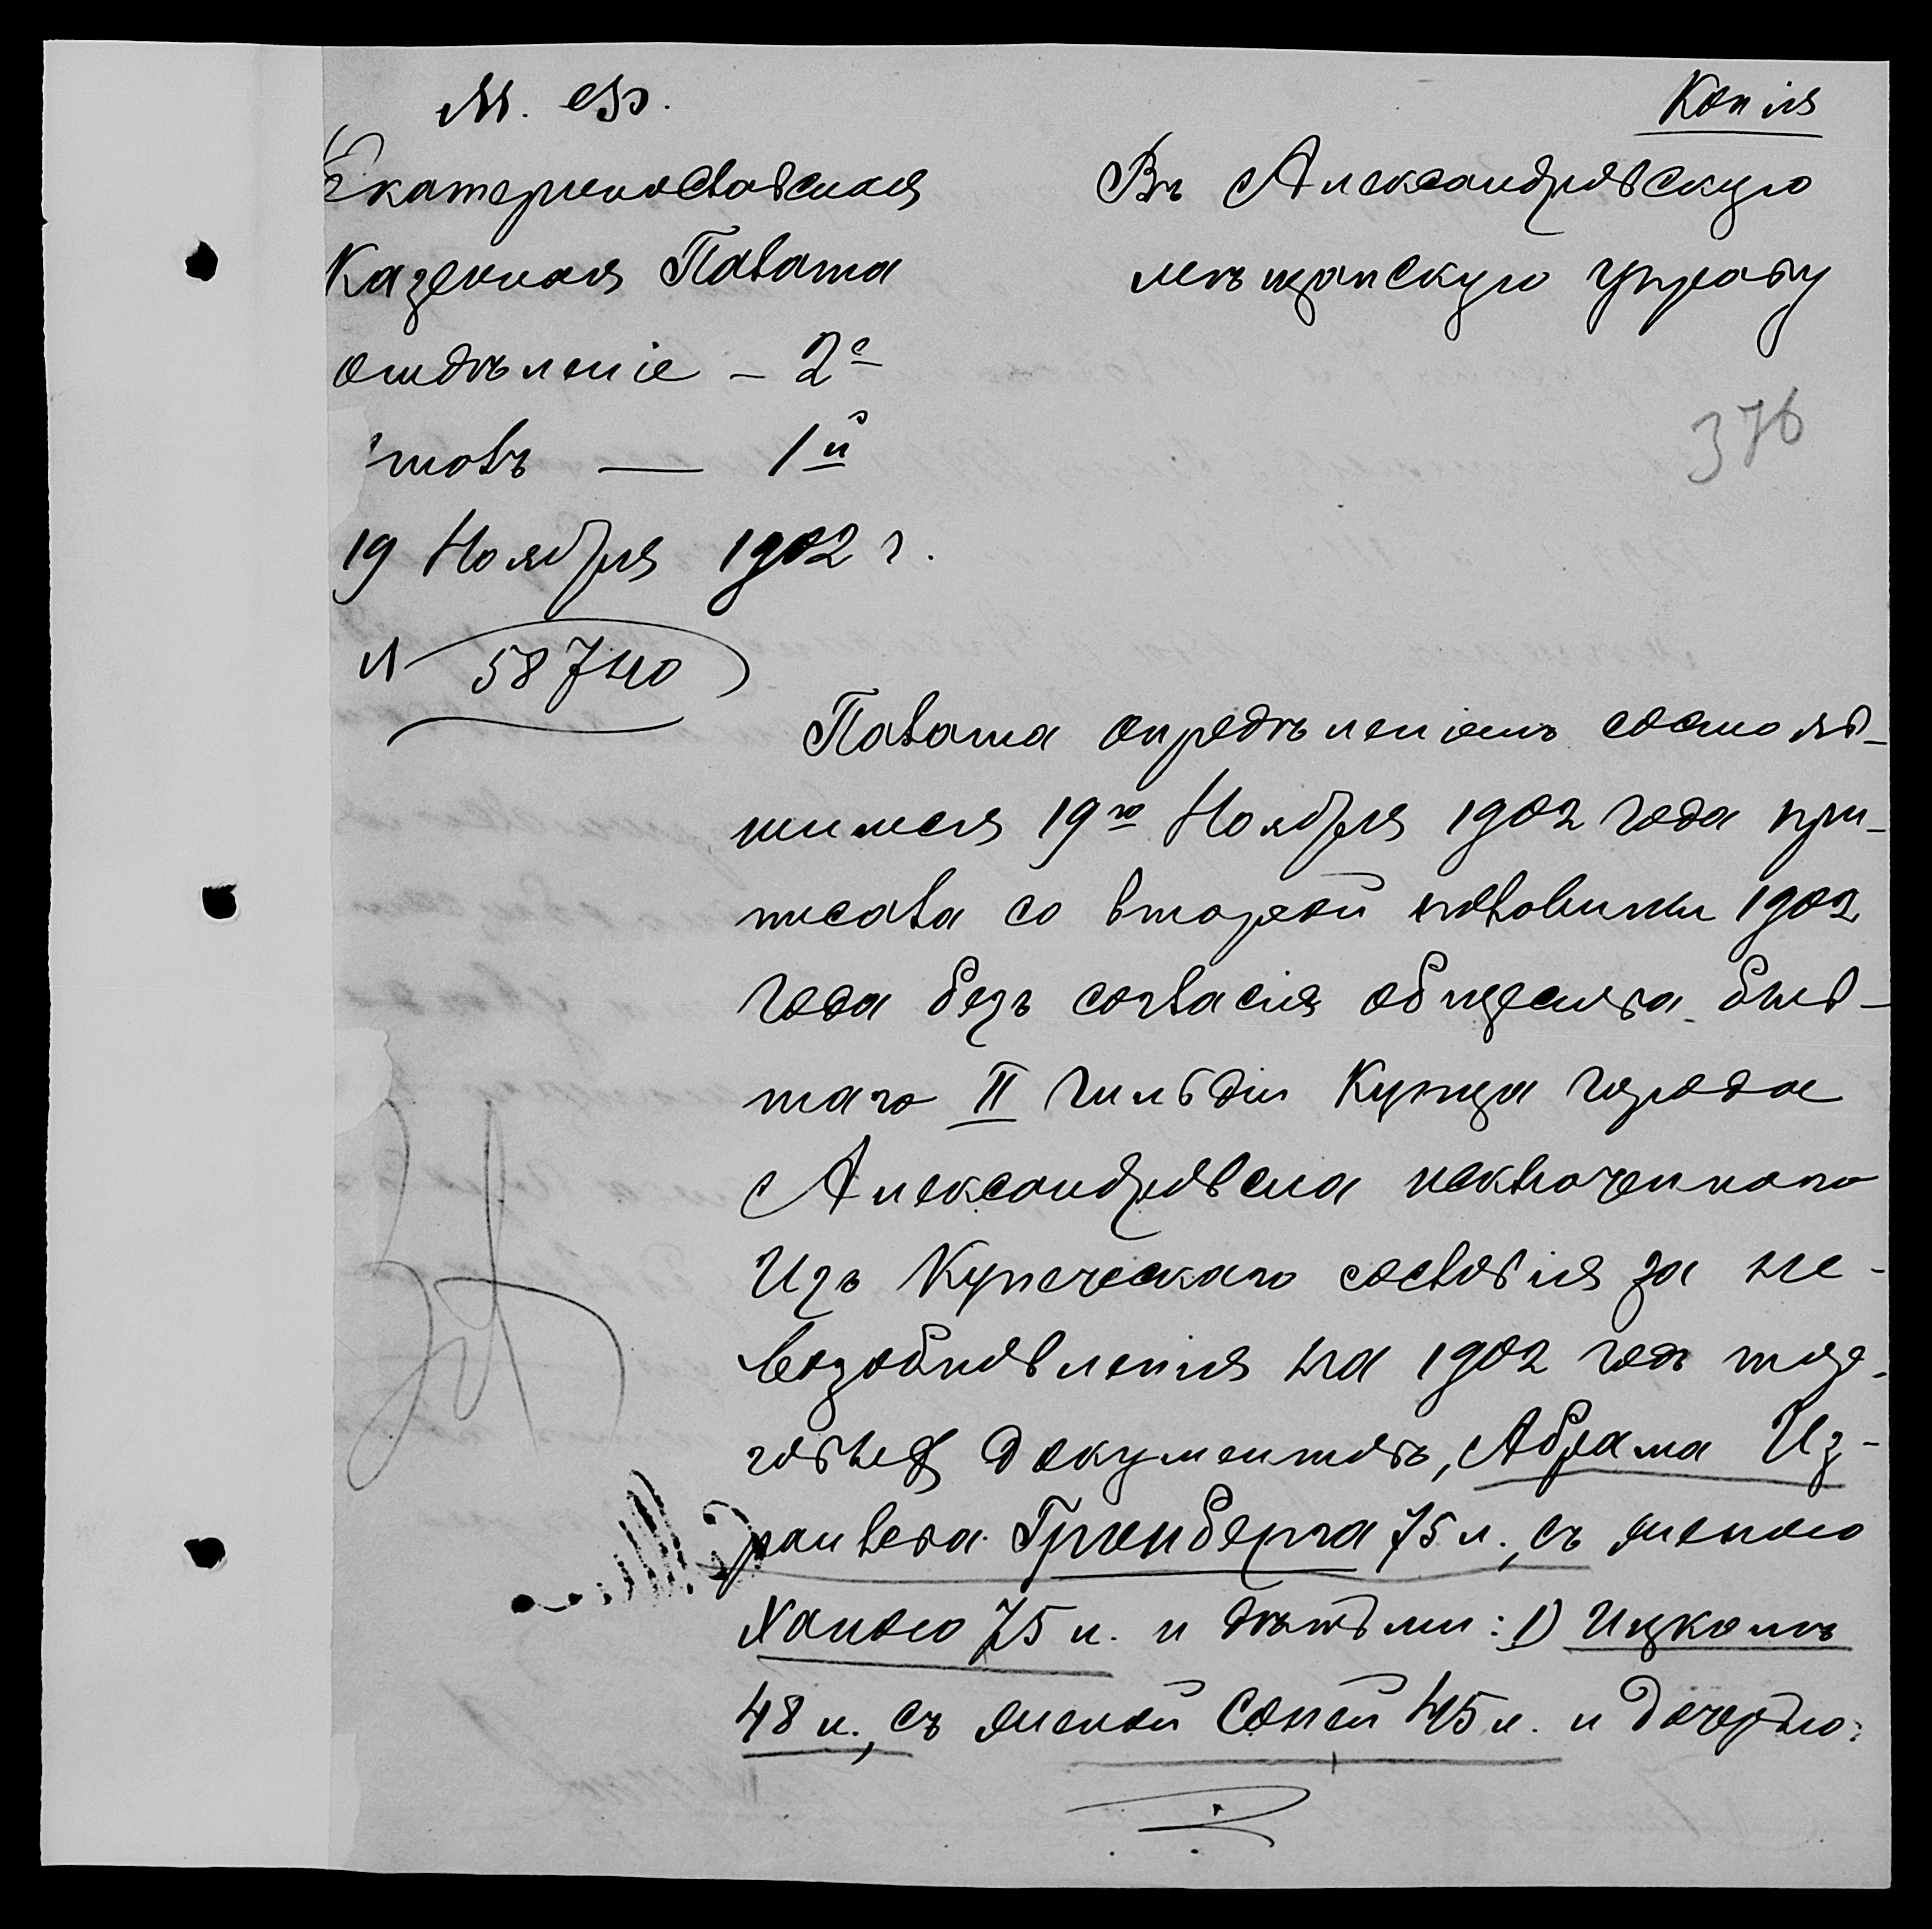 М. Ф.
Екатеринославская
Казенная Палата
отдѣленіе – 2е
столъ — 1й
19 Ноября 1902 г.
N 58740
Копія
Въ Александровскую
мѣщанскую управу
376
Палата опредѣленіемъ состояв-
шимся 19го Ноября 1902 года при-
писала со второй половины 1902
года безъ согласія общества быв-
шаго II гильдіи Купца города
Александровска исключеннаго
Изъ Купеческаго сословія за не-
возобновленія на 1902 годъ тор-
говыхъ документовъ, Абрама Из-
раилева Гринберга 75 л., съ женою
Ханою 75 л. и дѣтьми: 1) Ицкомъ
48 л., съ женой Соней 45 л. и дочерью: